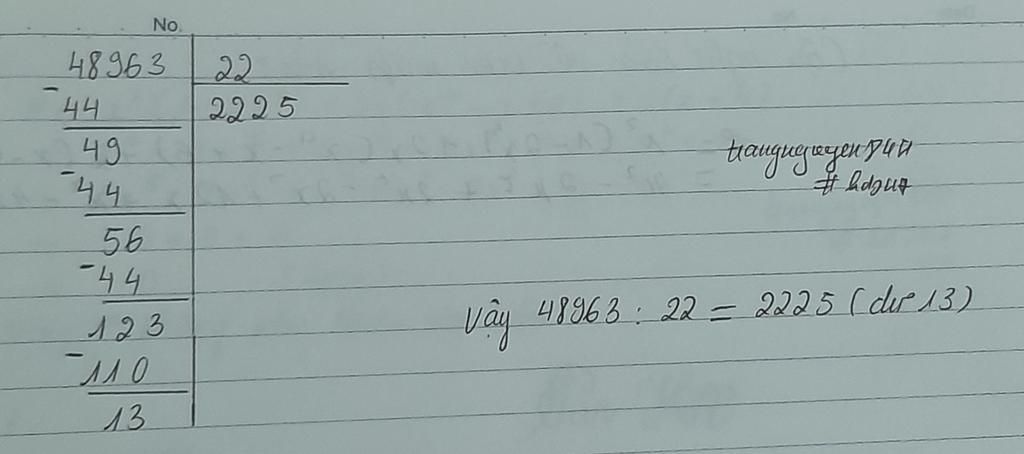 No.
48963 22
- 44 2225
49
- 44
56
- 44
123
- 110
13
Vậy 48963 : 22 = 2225 (dư 13)